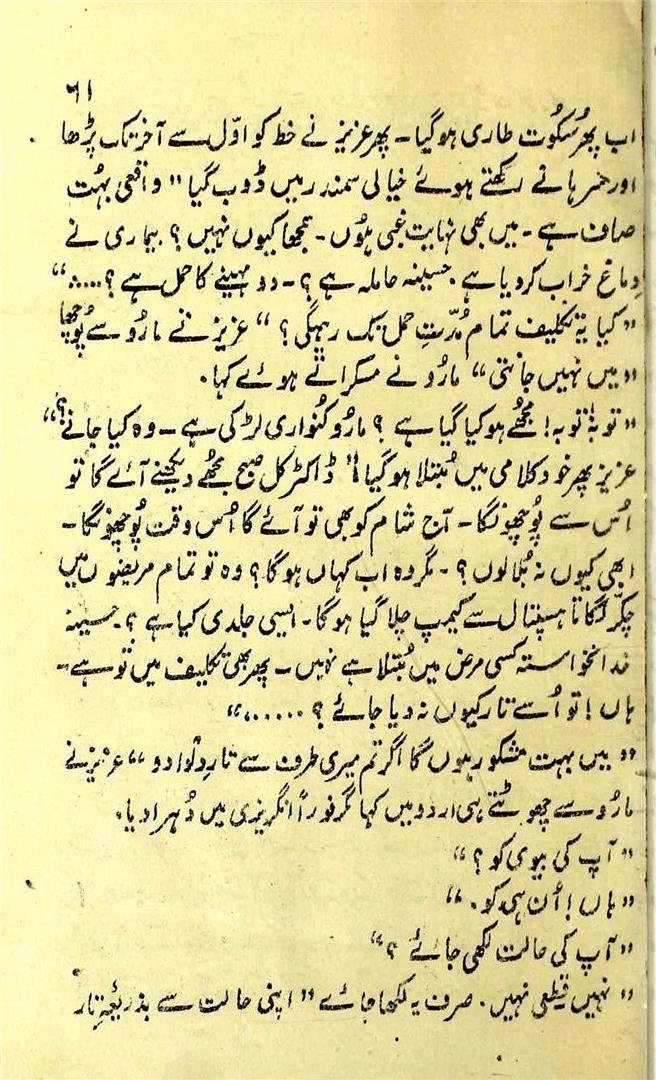 ۶۱
اب پھر سُکُوت طاری ہوگیا۔ پھر عزیز نے خط کو اوّل سے آخر تک پڑھا
اور سرہانے رکھتے ہوئے خیالی سمندر میں ڈوب گیا "واقعی بہُت
صاف ہے۔ میں بھی نہایت غبی ہوُں۔ سمجھا کیوں نہیں؟ بیماری نے
دِماغ خراب کر دیا ہے۔ حسینہ حاملہ ہے؟۔ دو مہینے کا حمل ہے؟....."
"کیا یہ تکلیف تمام مُدّتِ حمل تک رہیگی؟" عزیز نے مارُو سے پُوچھا
"میں نہیں جانتی" مارُو نے مسکراتے ہوئے کہا۔
"توبہ! توبہ! مجُھے ہو کیا گیا ہے؟ مارُو کنُواری لڑکی ہے۔ وہ کیا جانے؟"
عزیز پھر خود کلامی میں مُبتلا ہوگیا! "ڈاکٹر کل صبح مجُھے دیکھنے آئے گا تو
اُس سے پُوچھونگا۔ آج شام کو بھی تو آئے گا اُس وقت پُوچھونگا۔
ابھی کیوں نہ بُلا لوں؟۔ مگر وہ اب کہاں ہوگا؟ وہ تو تمام مریضوں میں
چکّر لگاتا ہسپتال سے کیمپ چلا گیا ہوگا۔ ایسی جلدی کیا ہے؟ حسینہ
خدانخواستہ کسی مرض میں مُبتلا ہے نہیں۔ پھر بھی تکلیف میں تو ہے۔
ہاں! تو اُسے تار کیوں نہ دیا جائے؟......"
"میں بہت مشکور ہوں گا اگر تم میری طرف سے تار دِلوا دو" عزیز نے
مارُو سے چھوٹتے ہی اردو میں کہا مگر فوراً انگریزی میں دُہرا دیا۔
"آپ کی بیوی کو؟"
"ہاں! اُن ہی کو۔"
"آپ کی حالت لکھی جائے؟"
"نہیں قیطعی نہیں۔ صرف یہ لکھا جائے "اپنی حالت سے بذریعۂ تار